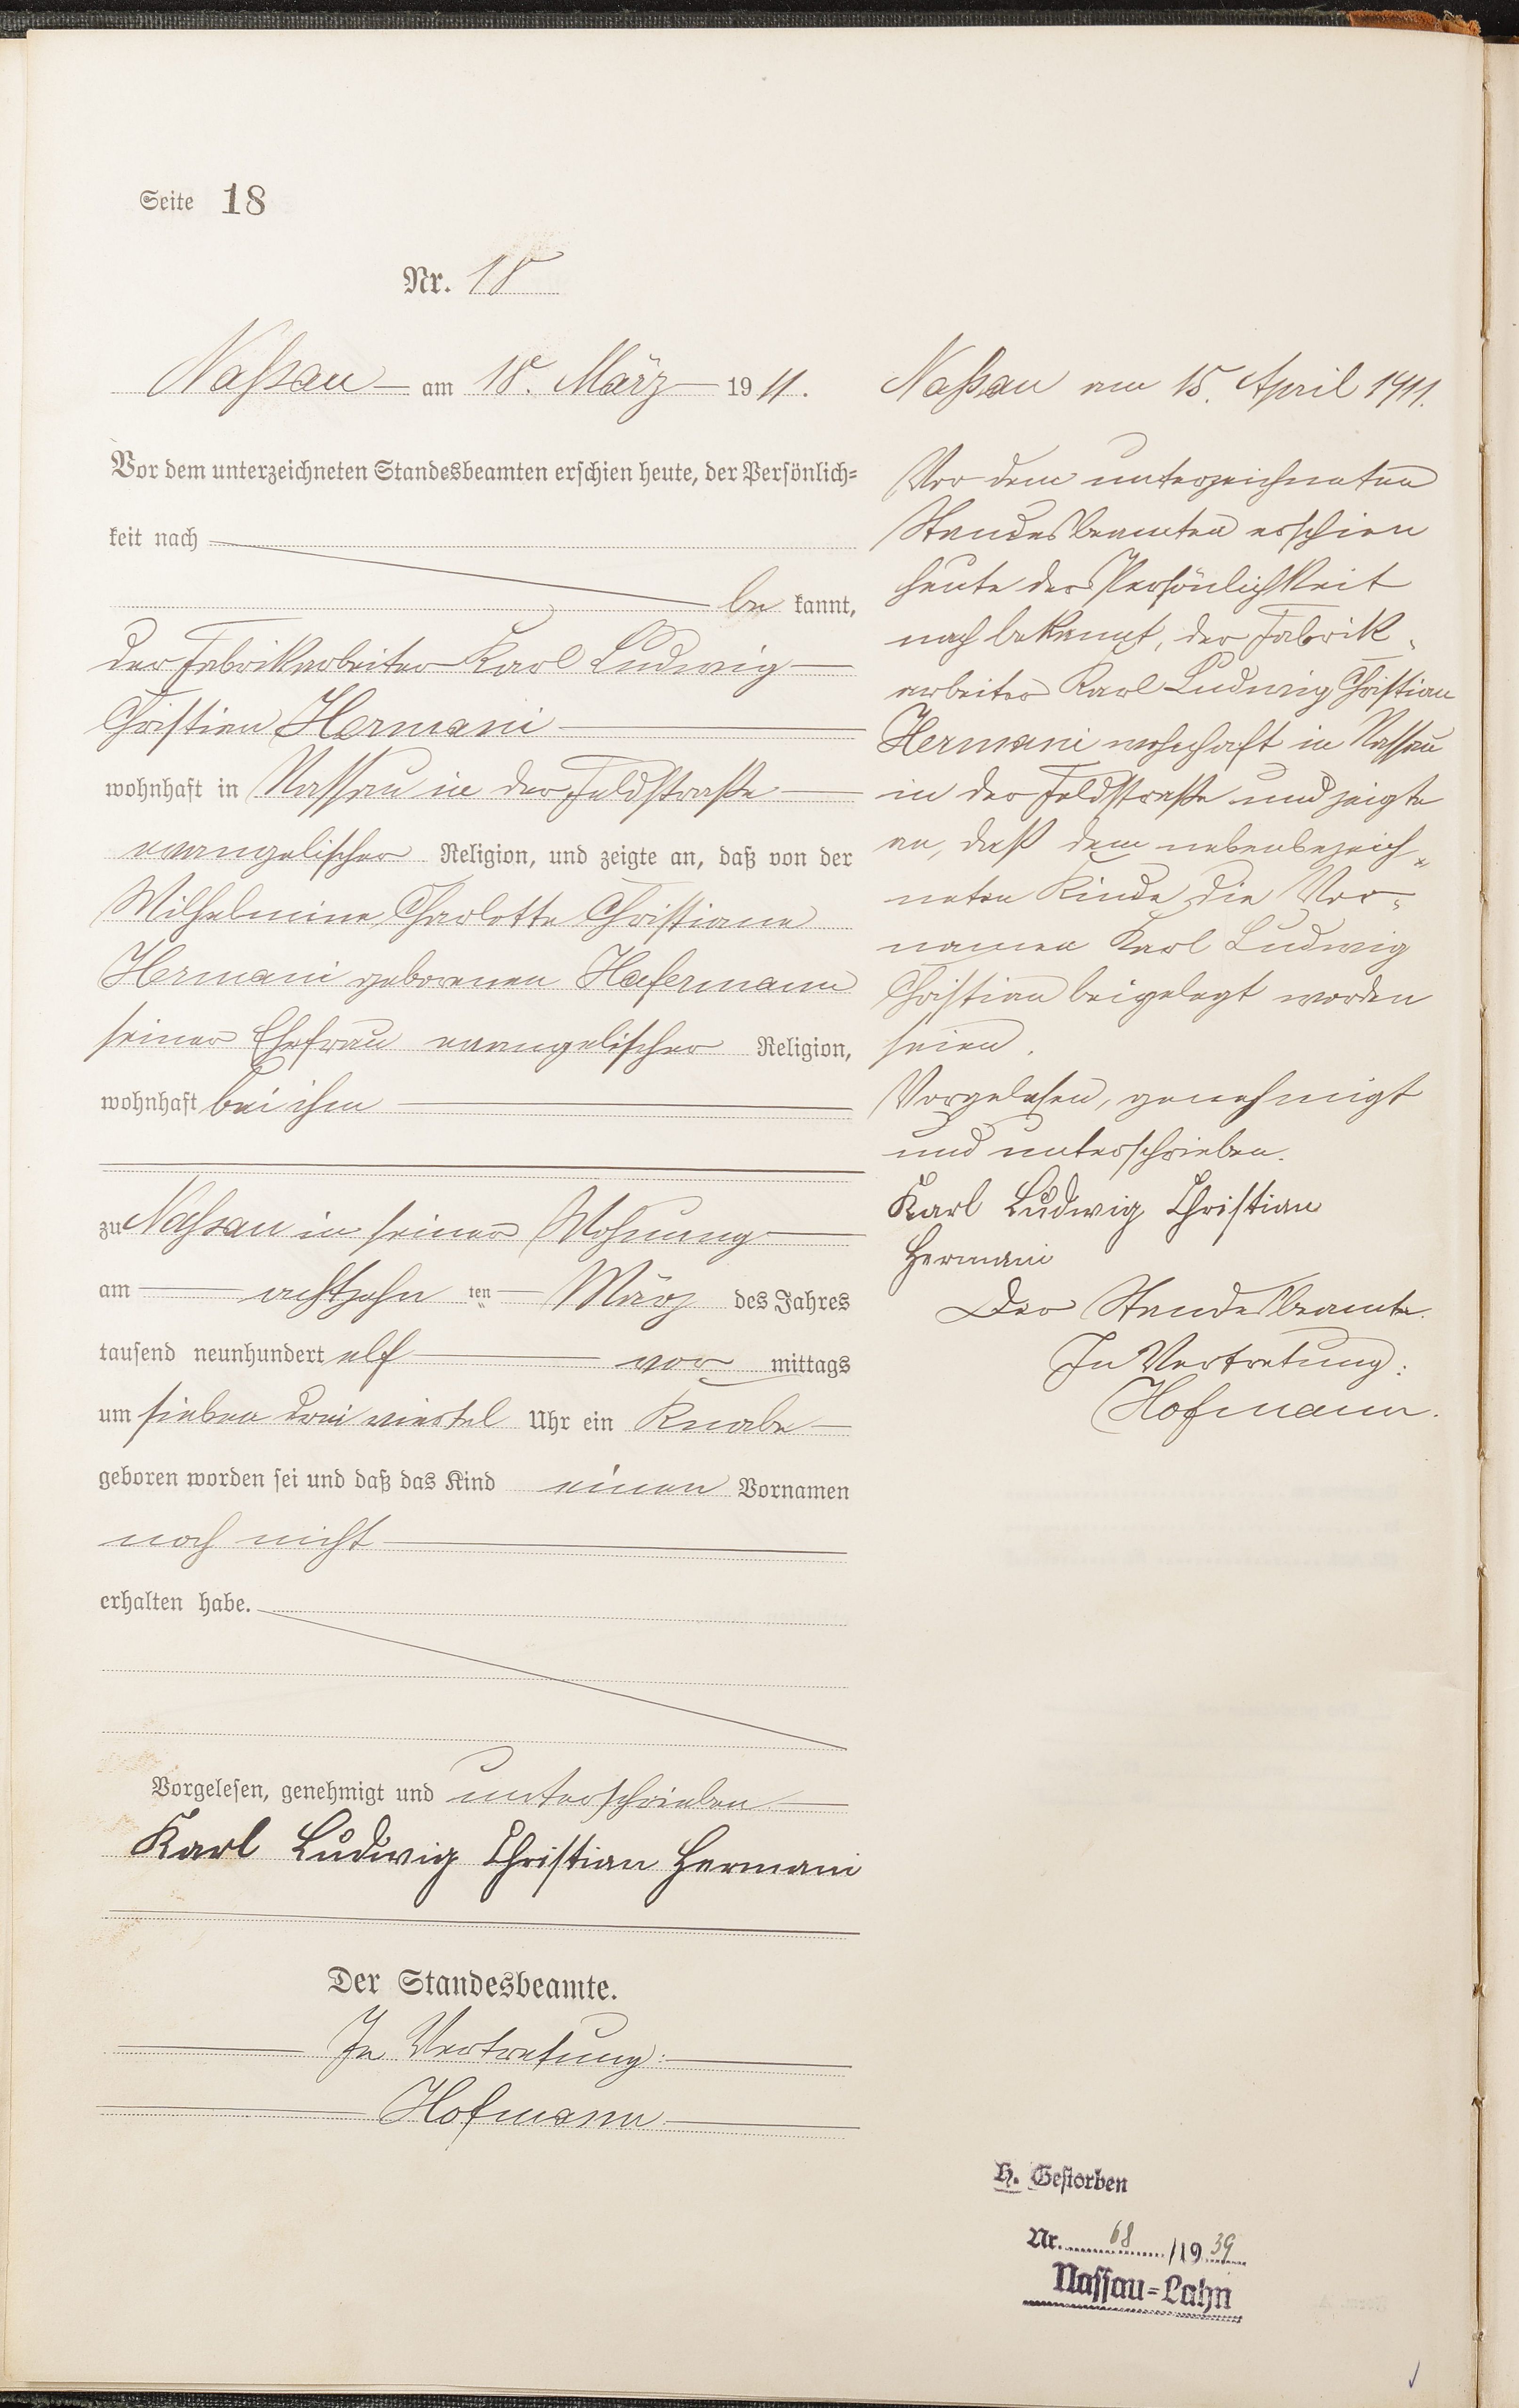 Seite 18
Nr. 18
Nassau am 18. März 1911.
Vor dem unterzeichneten Standesbeamten erschien heute, der Persönlich=
keit nach
be kannt,
der Fabrikarbeiter Karl Ludwig
Christian Hermani
wohnhaft in Nassau in der Feldstraße
evangelischer Religion, und zeigte an, daß von der
Wilhelmine Charlotte Christiane
Hermani geborenen Hafermann
seiner Ehefrau evangelischer Religion,
wohnhaft bei ihm
zu Nassau in seiner Wohnung
am achtzehn ten März des Jahres
tausend neunhundert elf vor mittags
um sieben drei viertel Uhr ein Knabe
geboren worden sei und daß das Kind einen Vornamen
noch nicht
erhalten habe.
Vorgelesen, genehmigt und unterschrieben
Karl Ludwig Christian Hermani
Der Standesbeamte.
In Vertretung:
Hofmann
Nassau am 15. April 1911.
Vor dem unterzeichneten
Standesbeamten erschien
heute der Persönlichkeit
nach bekannt, der Fabrik-
arbeiter Karl Ludwig Christian
Hermani wohnhaft in Nassau
in der Feldstraße und zeigte
an, daß dem nebenbezeich-
neten Kinde die Vor-
namen Karl Ludwig
Christian beigelegt worden
seien.
Vorgelesen, genehmigt
und unterschrieben.
Karl Ludwig Christian
Hermani
Der Standesbeamte.
In Vertretung:
Hofmann.
H. Gestorben
Nr. 68 /1939
Nassau=Lahn